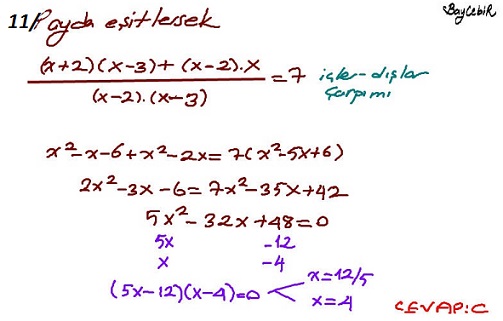 BayCebir
11) Payda eşitlersek
(x+2)(x-3)+(x-2).x
/ (x-2).(x-3) = 7 içler-dışlar
çarpımı
x²-x-6+x²-2x=7(x²-5x+6)
2x²-3x-6=7x²-35x+42
5x²-32x+48=0
5x -12
x -4
(5x-12)(x-4)=0 x=12/5
x=4
CEVAP:C